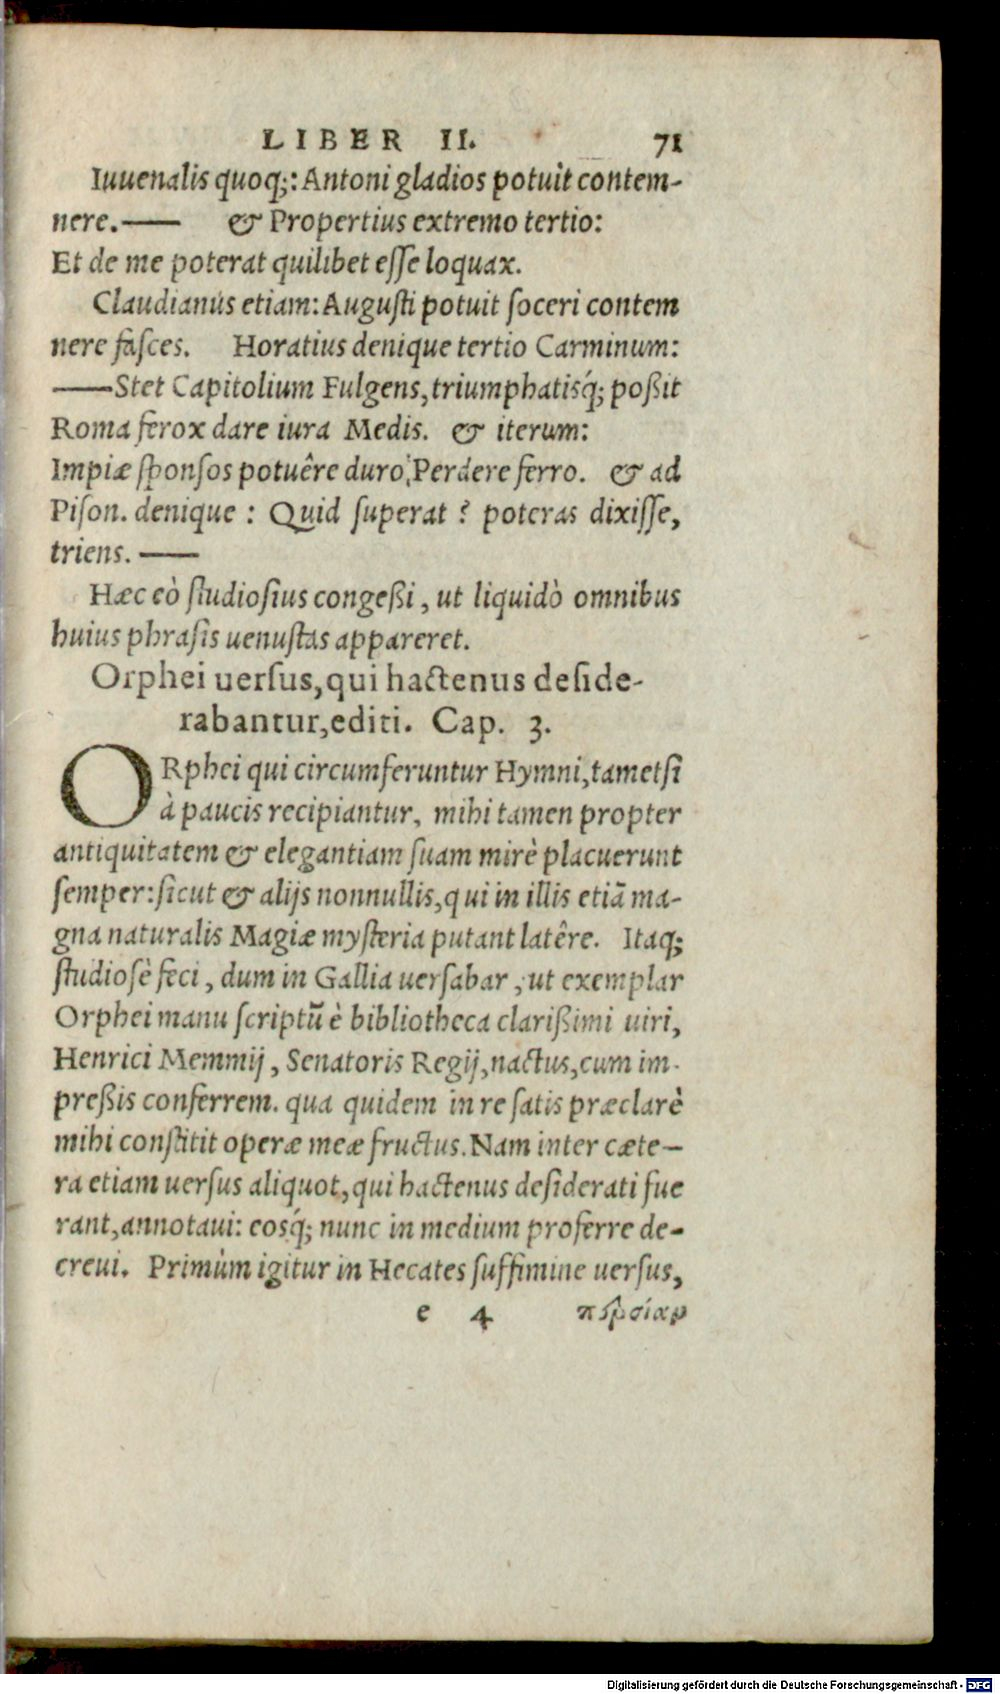 LIBER II. 71
Iuuenalis quoq;: Antoni gladios potuit contem-
nere.—— & Propertius extremo tertio:
Et de me poterat quilibet esse loquax.
Claudianus etiam: Augusti potuit soceri contem
nere fasces. Horatius denique tertio Carminum:
——Stet Capitolium Fulgens, triumphatisq́; poßit
Roma ferox dare iura Medis. & iterum:
Impiæ sponsos potuêre duro, Perdere ferro. & ad
Pison. denique : Quid superat ? poteras dixisse,
triens. ——
Hæc eò studiosius congeßi, ut liquidò omnibus
huius phrasis uenustas appareret.
Orphei uersus, qui hactenus deside-
rabantur, editi. Cap. 3.
ORphei qui circumferuntur Hymni, tametsi
à paucis recipiantur, mihi tamen propter
antiquitatem & elegantiam suam mirè placuerunt
semper: sicut & alijs nonnullis, qui in illis etiã ma-
gna naturalis Magiæ mysteria putant latêre. Itaq;
studiosè feci, dum in Gallia uersabar, ut exemplar
Orphei manu scriptũ è bibliotheca clarißimi uiri,
Henrici Memmij, Senatoris Regij, nactus, cum im-
preßis conferrem. qua quidem in re satis præclarè
mihi constitit operæ meæ fructus. Nam inter cæte-
ra etiam uersus aliquot, qui hactenus desiderati fue
rant, annotaui: eosq́; nunc in medium proferre de-
creui. Primùm igitur in Hecates suffimine uersus,
e 4
Digitalisierung gefördert durch die Deutsche Forschungsgemeinschaft - DFG